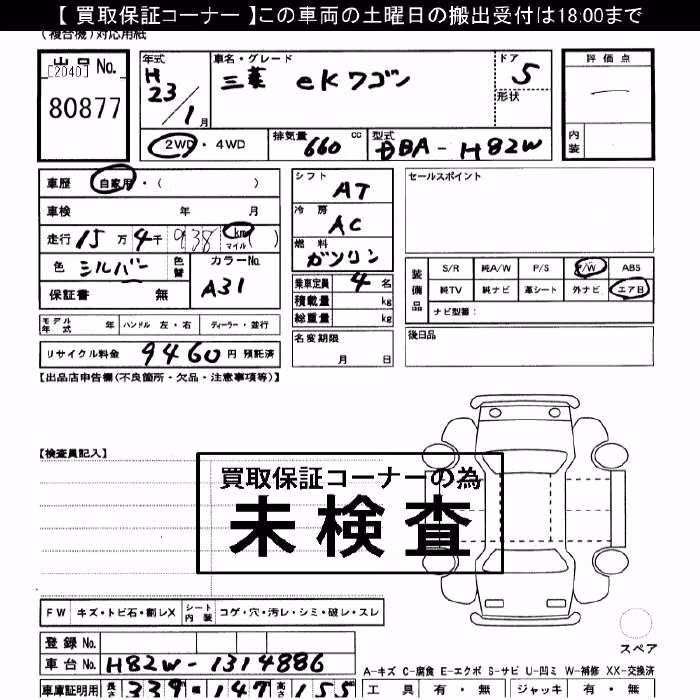 【 買取保証コーナー 】この車両の土曜日の搬出受付は18:00まで
(複合機)対応用紙
出品 No.
[2040]
80877
年式
H
23/1月
車名・グレード
三菱 eKワゴン
ドア
5
形状
評価点
内装
2WD・4WD
排気量 660 cc
型式 BBA-H82W
車歴 自家用・( )
車検 年 月
走行 15万4千938 km マイル ( )
色 シルバー 色替 カラーNo. A31
保証書 無
シフト AT
冷房 AC
燃料 ガソリン
乗車定員 4名
積載量 kg
総重量 kg
名変期限
月 日
セールスポイント
装備品
S/R 純A/W P/S P/W ABS
純TV 純ナビ 革シート 外ナビ エアB
ナビ型番:
後日品
モデル年式 年 ハンドル 左・右 ディーラー・並行
リサイクル料金 9460円 預託済
【出品店申告欄(不良箇所・欠品・注意事項等)】
【検査員記入】
買取保証コーナーの為
未検査
FW キズ・トビ石・割レX シート内装 コゲ・穴・汚レ・シミ・破レ・スレ
登録 No.
車台 No. H82W-1314886
車庫証明用 長さ 339 147 高さ 155
スペア
A-キズ C-腐食 E-エクボ S-サビ U-凹ミ W-補修 XX-交換済
工具 有・無 ジャッキ 有・無